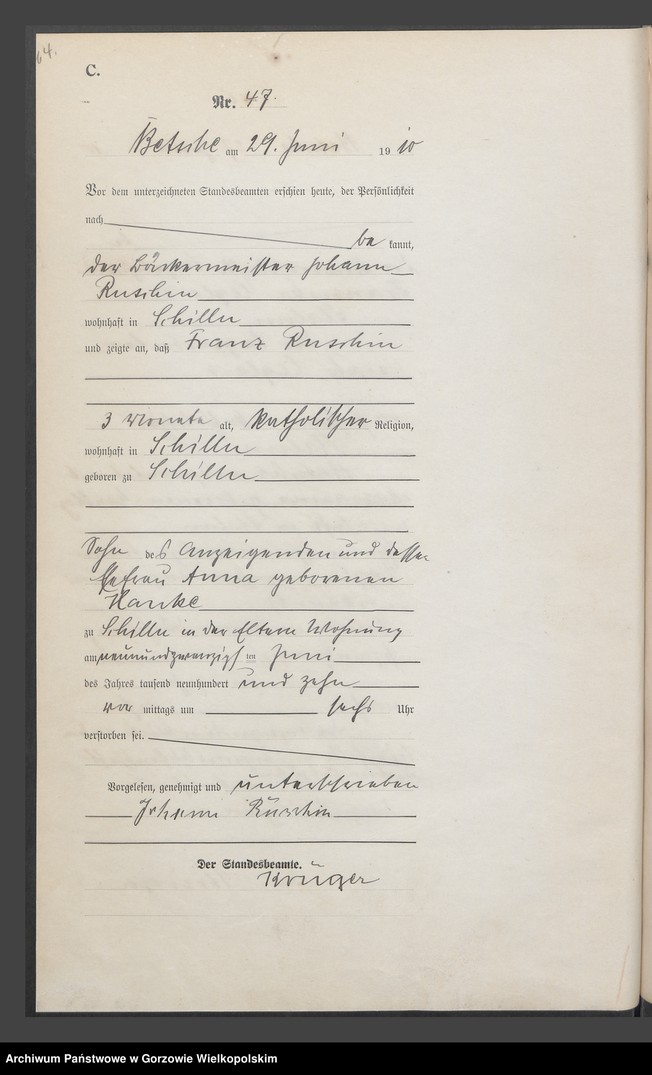 64.
C.
Nr. 47.
Betsche am 29. Juni 1910
Vor dem unterzeichneten Standesbeamten erschien heute, der Persönlichkeit
nach
be kannt,
der Bäckermeister Johann
Ruschin
wohnhaft in Schilln
und zeigte an, daß Franz Ruschin
3 Monate alt, katholischer Religion,
wohnhaft in Schilln
geboren zu Schilln
Sohn des Anzeigenden und dessen
Ehefrau Anna geborenen
Hanke
zu Schilln in der Eltern Wohnung
am neunundzwanzigsten Juni
des Jahres tausend neunhundert und zehn
vor mittags um sechs Uhr
verstorben sei.
Vorgelesen, genehmigt und unterschrieben
Johann Ruschin
Der Standesbeamte.
Krüger
Archiwum Państwowe w Gorzowie Wielkopolskim